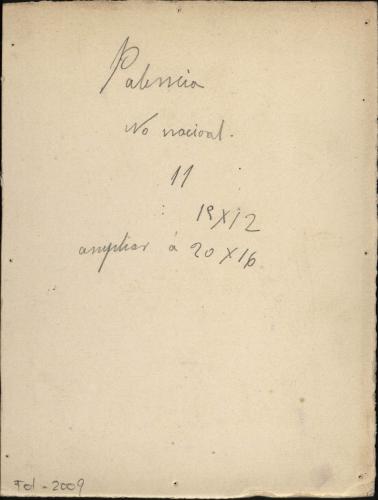 Palencia
No nacional.
11
: 19X12
ampliar á 20X16
Fot-2009